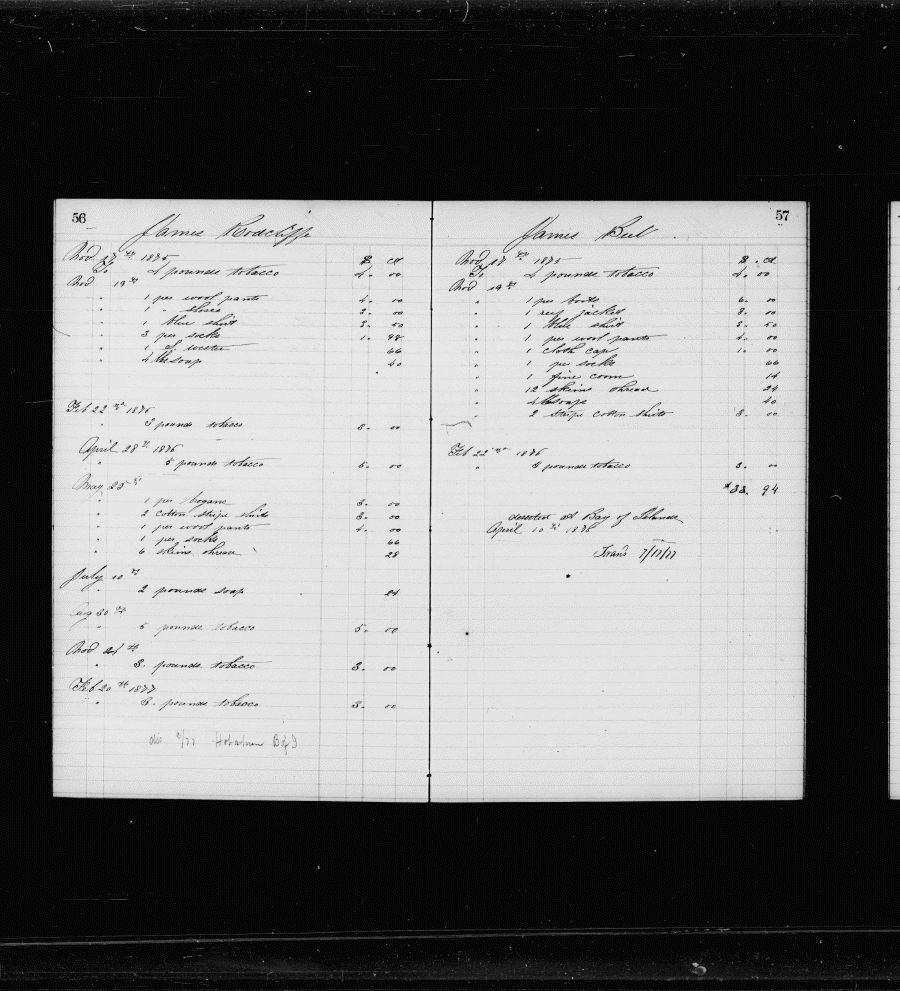 56
James Rodcliffe
Nov 17th 1875 $ ct
To 4 pounds tobacco 4. 00
Nov 19th
" 1 per wool pants 4. 00
" 1 " shoes 2. 00
" 1 blue shirt 2. 50
" 3 per socks 1. 98
" 1 wester 66
" 4 lb soap 40
Feb 22nd 1876
" 3 pounds tobacco 3. 00
April 28th 1876
" 5 pounds tobacco 5. 00
May 25th
" 1 per brogans 2. 00
" 2 cotton stripe shirts 3. 00
" 1 per wool pants 4. 00
" 1 per socks 66
" 6 skeins thread 28
July 10th
" 2 pounds soap 24
Aug 30th
" 5 pounds tobacco 5. 00
Nov 21th
" 3. pounds tobacco 3. 00
Feb 20th 1877
" 3. pounds tobacco 3. 00
dis /77 B of I
57
James Bell
Nov 17th 1875 $. ct
To 4 pounds tobacco 4. 00
Nov 19th
" 1 per boots 6. 00
" 1 reef jacket 8. 00
" 1 blue shirt 2. 50
" 1 per wool pants 4. 00
" 1 cloth cap 1. 00
" 1 per socks 66
" 1 fine comm 14
" 12 skeins thread 24
" 4 lb soap 40
" 2 stripe cotton shirts 3. 00
Feb 22nd 1876
" 3 pounds tobacco 3. 00
$33. 94
deserted at Bay of Islands
April 10th 1876
Trans 7/17/77